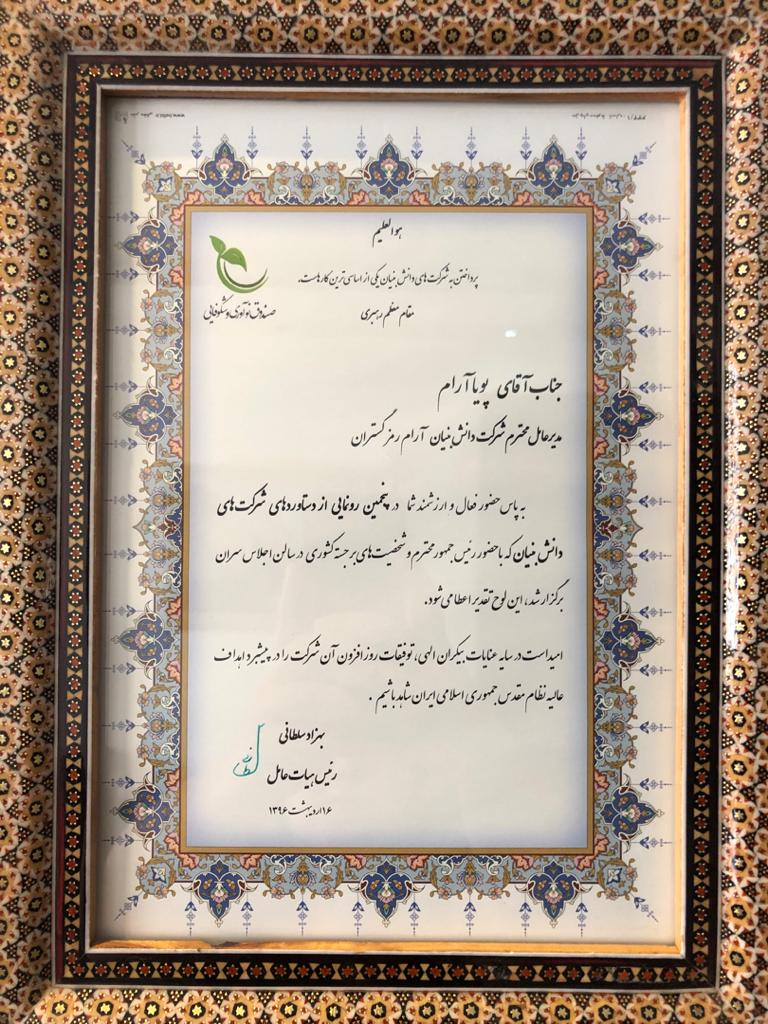 هوالعلیم
پرداختن به شرکت‌های دانش بنیان یکی از اساسی ترین کارهاست.
مقام معظم رهبری
صندوق نوآوری و شکوفایی
جناب آقای پویا آرام
مدیرعامل محترم شرکت دانش بنیان آرام رمز گستران
به پاس حضور فعال و ارزشمند شما در پنجمین رونمایی از دستاوردهای شرکت های
دانش بنیان که با حضور رئیس جمهور محترم و شخصیت‌های برجسته کشوری در سالن اجلاس سران
برگزار شد، این لوح تقدیر اعطا می شود.
امید است در سایه عنایات بیکران الهی، توفیقات روز افزون آن شرکت را در پیشبرد اهداف
عالیه نظام مقدس جمهوری اسلامی ایران شاهد باشیم .
بهزاد سلطانی
رئیس هیات عامل
۱۶ اردیبهشت ۱۳۹۶